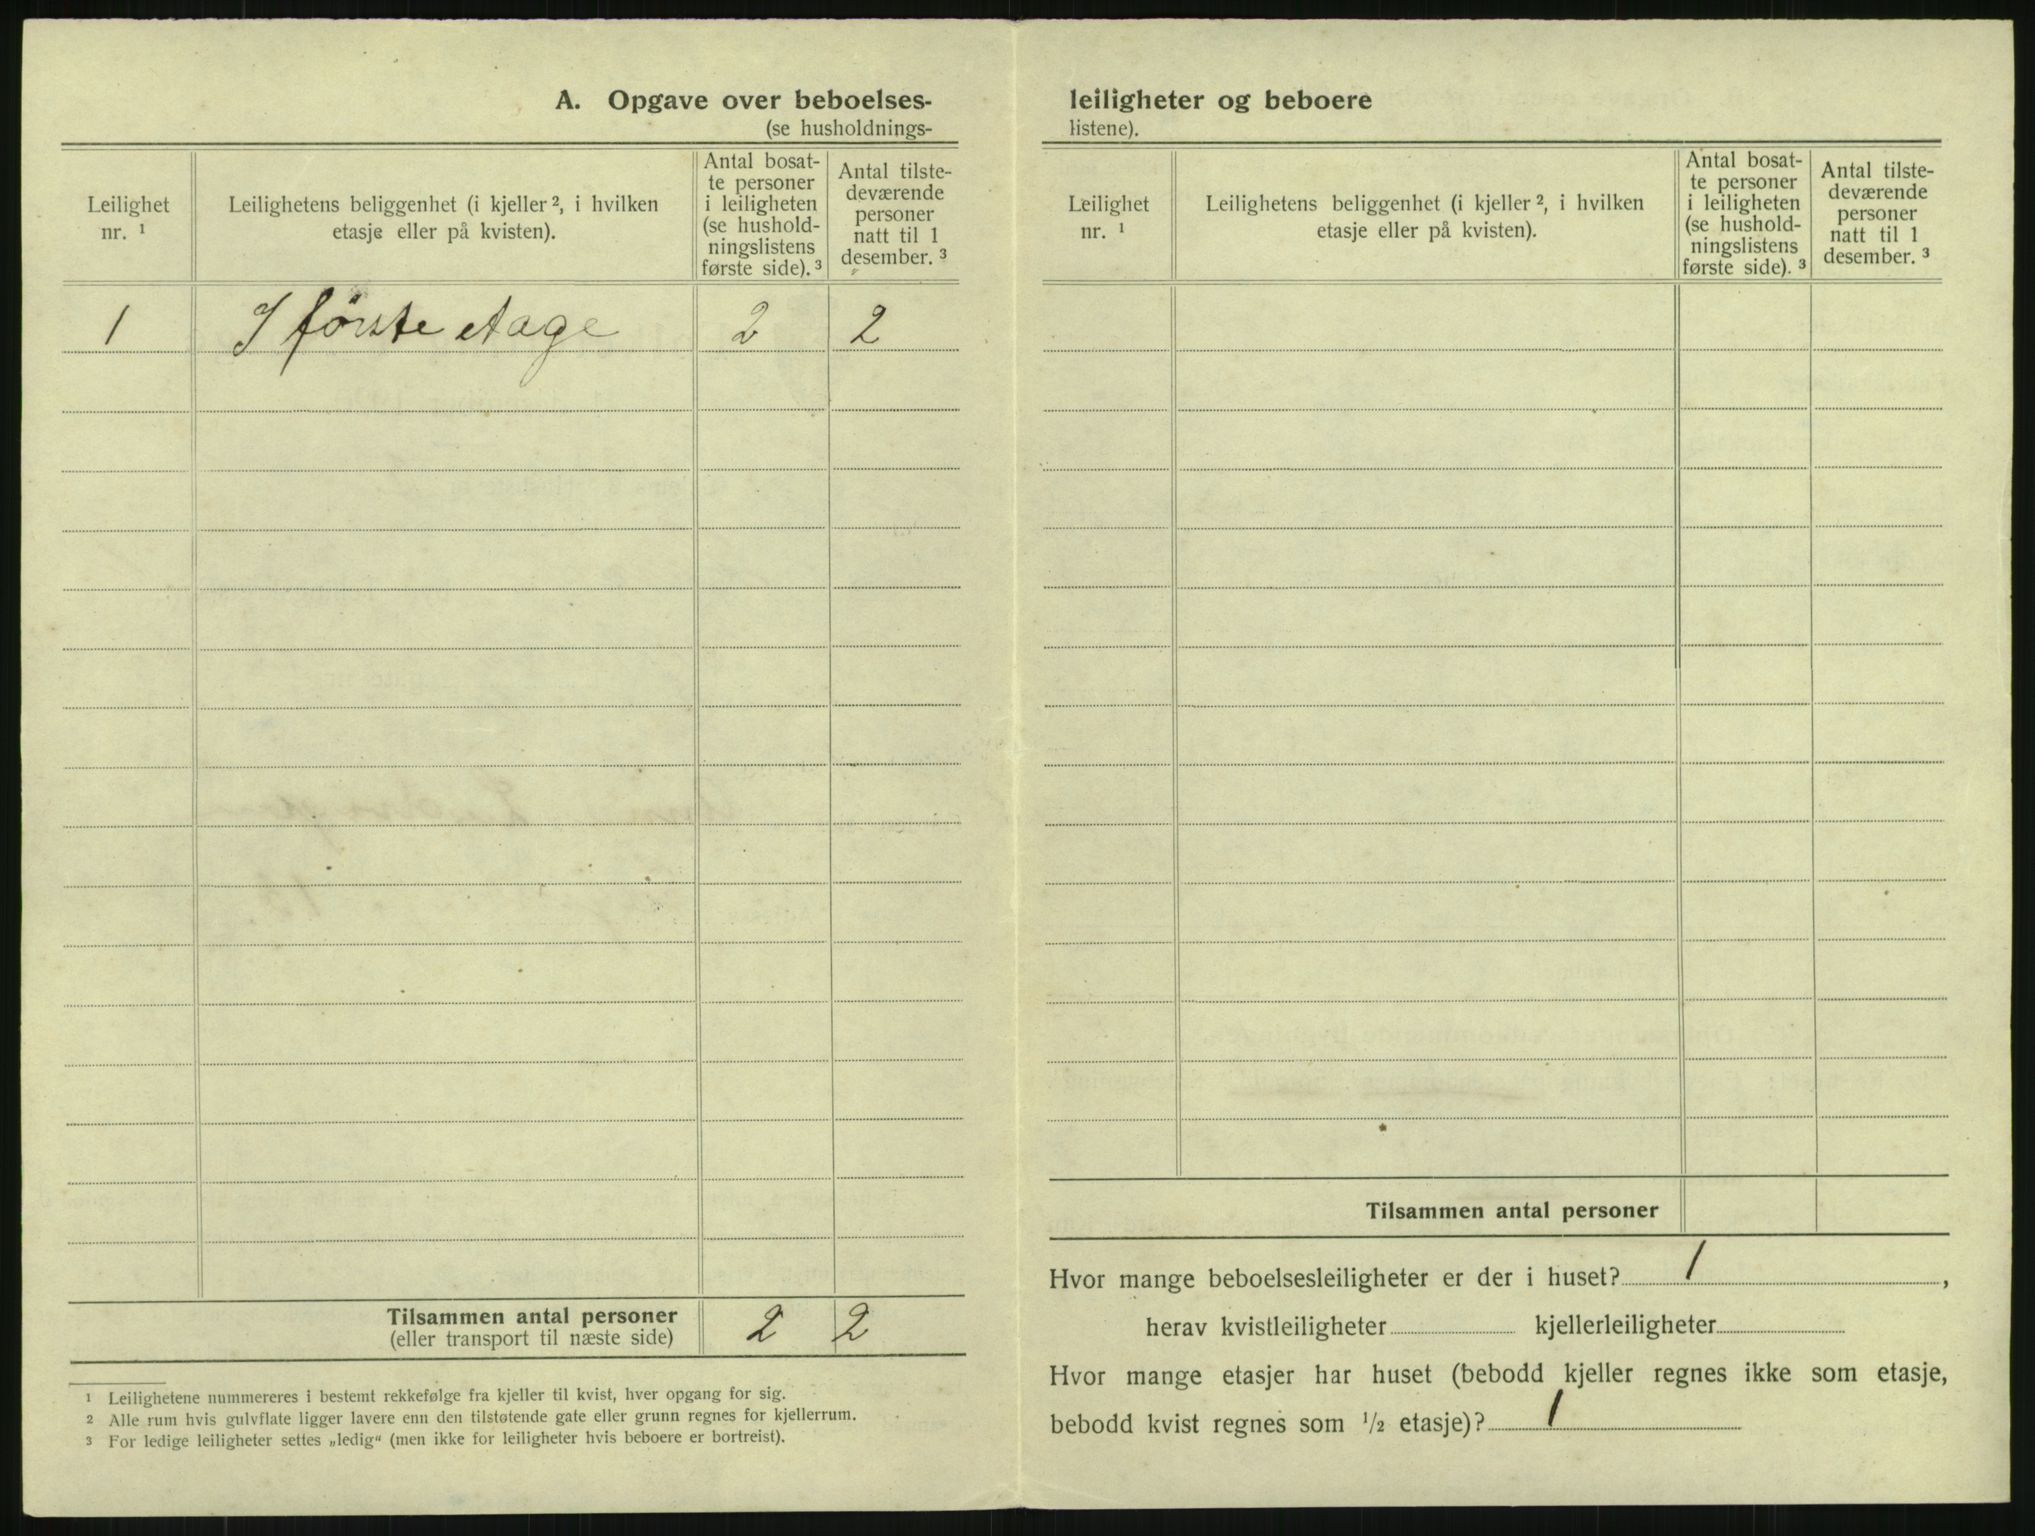 A. Opgave over beboelses-
(se husholdnings-
Leilighet
nr. 1
Leilighetens beliggenhet (i kjeller 2, i hvilken
etasje eller på kvisten).
Antal bosat-
te personer
i leiligheten
(se hushold-
ningslistens
første side). 3
Antal tilste-
deværende
personer
natt til 1
desember. 3
1 I første etage 2 2
Tilsammen antal personer 2 2
(eller transport til næste side)
1 Leilighetene nummereres i bestemt rekkefølge fra kjeller til kvist, hver opgang for sig.
2 Alle rum hvis gulvflate ligger lavere enn den tilstøtende gate eller grunn regnes for kjellerrum.
3 For ledige leiligheter settes „ledig“ (men ikke for leiligheter hvis beboere er bortreist).
leiligheter og beboere
listene).
Leilighet
nr. 1
Leilighetens beliggenhet (i kjeller 2, i hvilken
etasje eller på kvisten).
Antal bosat-
te personer
i leiligheten
(se hushold-
ningslistens
første side). 3
Antal tilste-
deværende
personer
natt til 1
desember. 3
Tilsammen antal personer
Hvor mange beboelsesleiligheter er der i huset? 1,
herav kvistleiligheter kjellerleiligheter
Hvor mange etasjer har huset (bebodd kjeller regnes ikke som etasje,
bebodd kvist regnes som 1/2 etasje)? 1